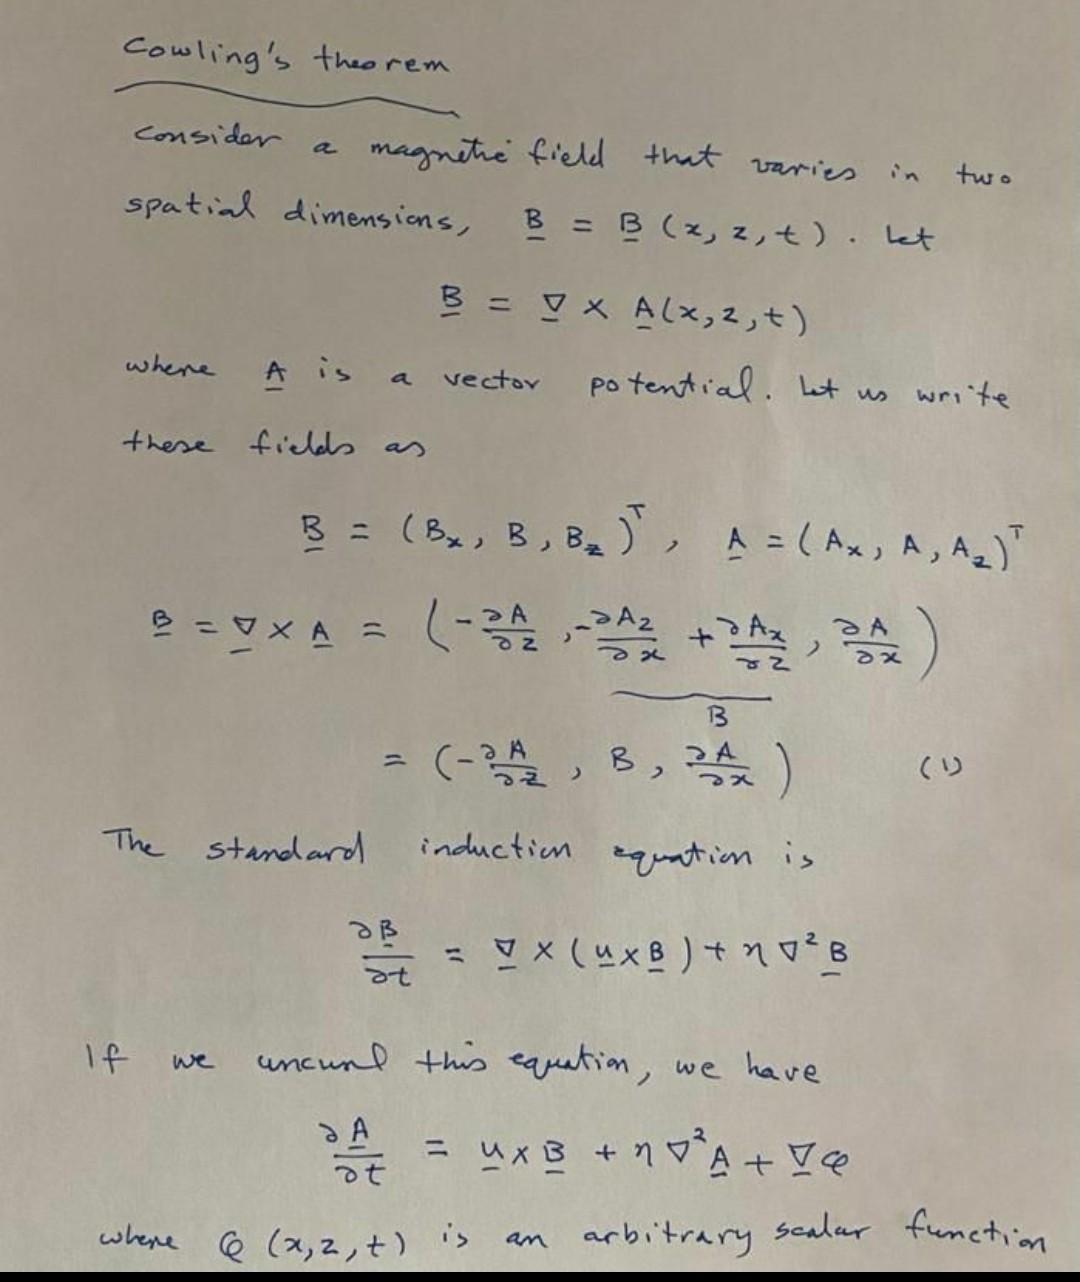 Cowling's theorem
Consider a magnetic field that varies in two
spatial dimensions, B̲ = B̲ (x, z, t). Let
B̲ = ∇̲ × A̲(x, z, t)
where A̲ is a vector potential. Let us write
these fields as
B̲ = (Bₓ, B, B_z)ᵀ, A̲ = (Aₓ, A, A_z)ᵀ
B̲ = ∇̲ × A̲ = (-∂A/∂z, -∂A_z/∂x + ∂Aₓ/∂z, ∂A/∂x)
B
= (-∂A/∂z, B, ∂A/∂x) (1)
The standard induction equation is
∂B̲/∂t = ∇̲ × (u̲ × B̲) + η∇²B̲
If we uncurl this equation, we have
∂A̲/∂t = u̲ × B̲ + η∇²A̲ + ∇̲φ
where φ (x, z, t) is an arbitrary scalar function